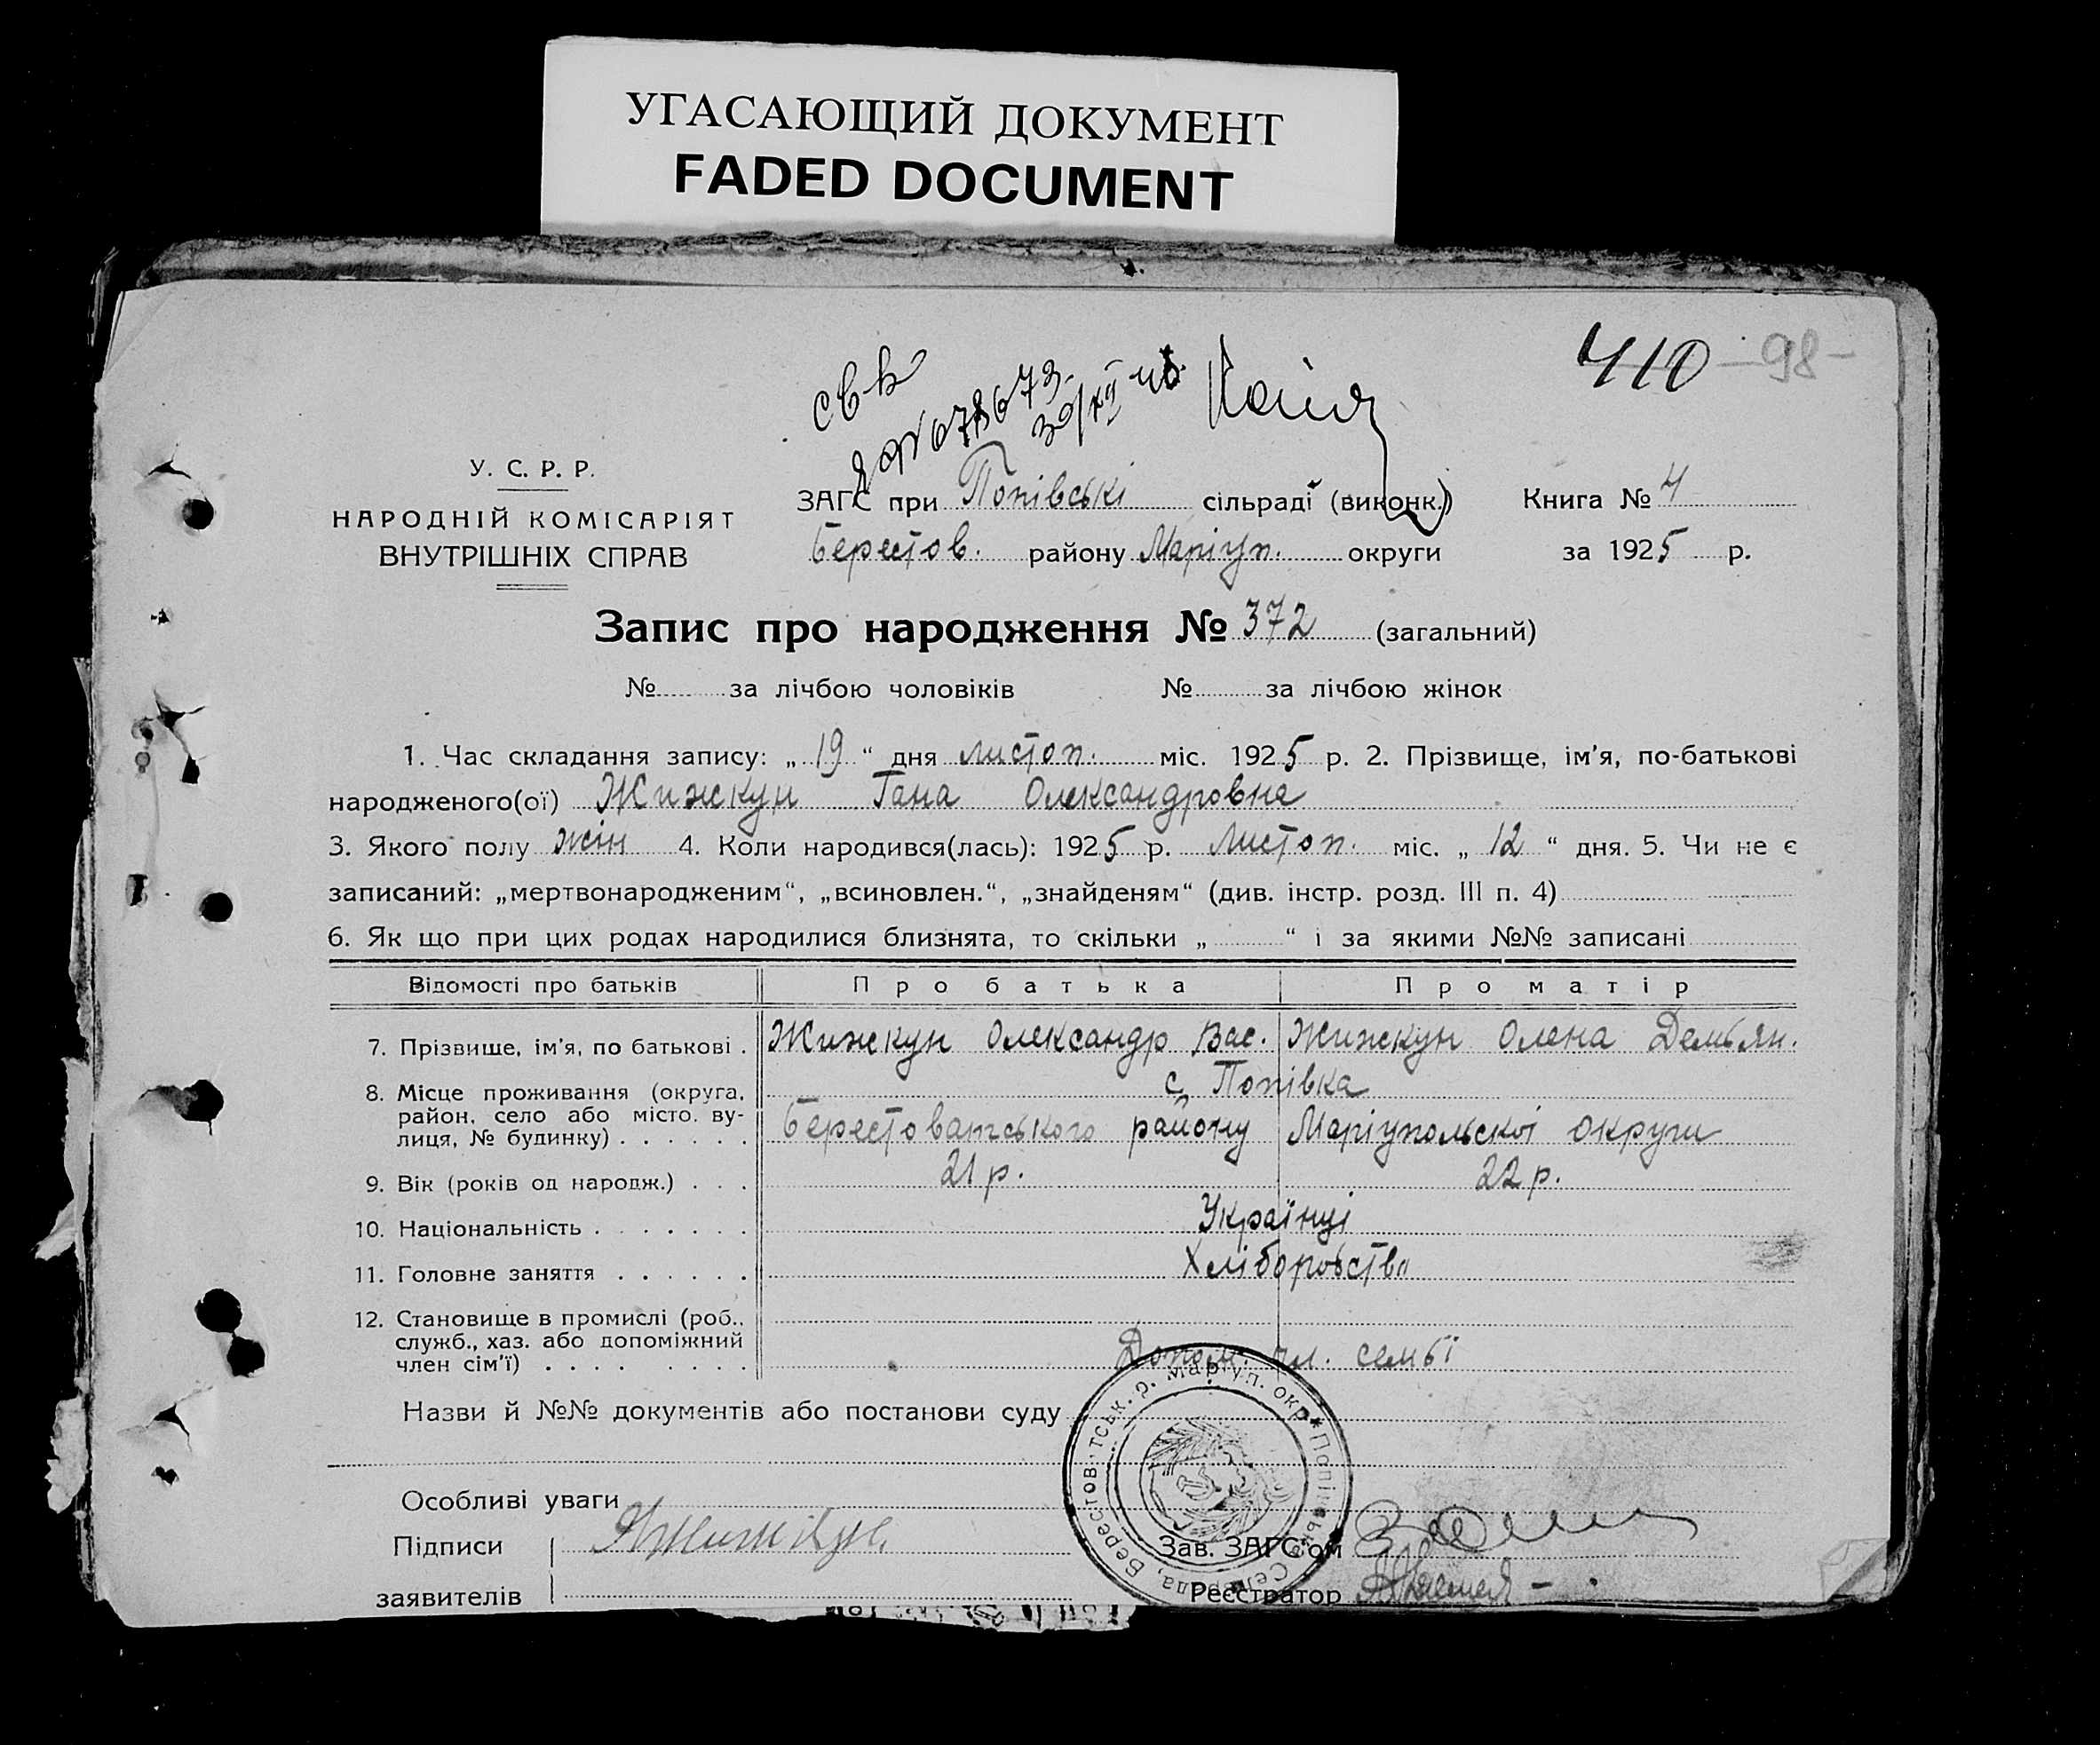 УГАСАЮЩИЙ ДОКУМЕНТ
FADED DOCUMENT
410 - 98 -
У. С. Р. Р.
НАРОДНІЙ КОМІСАРІЯТ
ВНУТРІШНІХ СПРАВ
ЗАГС при Попівські сільраді (виконк.)
Берестов. району Маріуп. округи
Книга № 4
за 1925 р.
Запис про народження № 372 (загальний)
№ за лічбою чоловіків № за лічбою жінок
1. Час складання запису: „ 19 “ дня листоп. міс. 1925 р. 2. Прізвище, ім'я, по-батькові
народженого(ої) Жижкун Гана Олександровна
3. Якого полу жін 4. Коли народився(лась): 1925 р. Листоп. міс. „ 12 “ дня. 5. Чи не є
записаний: „мертвонародженим“, „всиновлен.“, „знайденям“ (див. інстр. розд. III п. 4)
6. Як що при цих родах народилися близнята, то скільки „ “ і за якими №№ записані
Відомості про батьків Про батька Про матір
7. Прізвище, ім'я, по батькові . Жижкун Олександр Вас. Жижкун Олена Демьян.
8. Місце проживання (округа, с. Попівка
район, село або місто, ву-
лиця, № будинку) . . . . . . Берестоватського району Маріупольскої округи
9. Вік (років од народж.) . . . 21 р. 22 р.
10. Національність . . . . . . . Українці
11. Головне заняття . . . . . . Хліборобство
12. Становище в промислі (роб.,
служб., хаз. або допоміжний
член сім'ї) . . . . . . . . Допом. чл. семьї
Назви й №№ документів або постанови суду
Берестов.тськ. р. Маріуп. окр. * Попівськ. Сельрада,
Особливі уваги
Підписи Жижкун
заявителів
Зав. ЗАГС'ом
Реєстратор